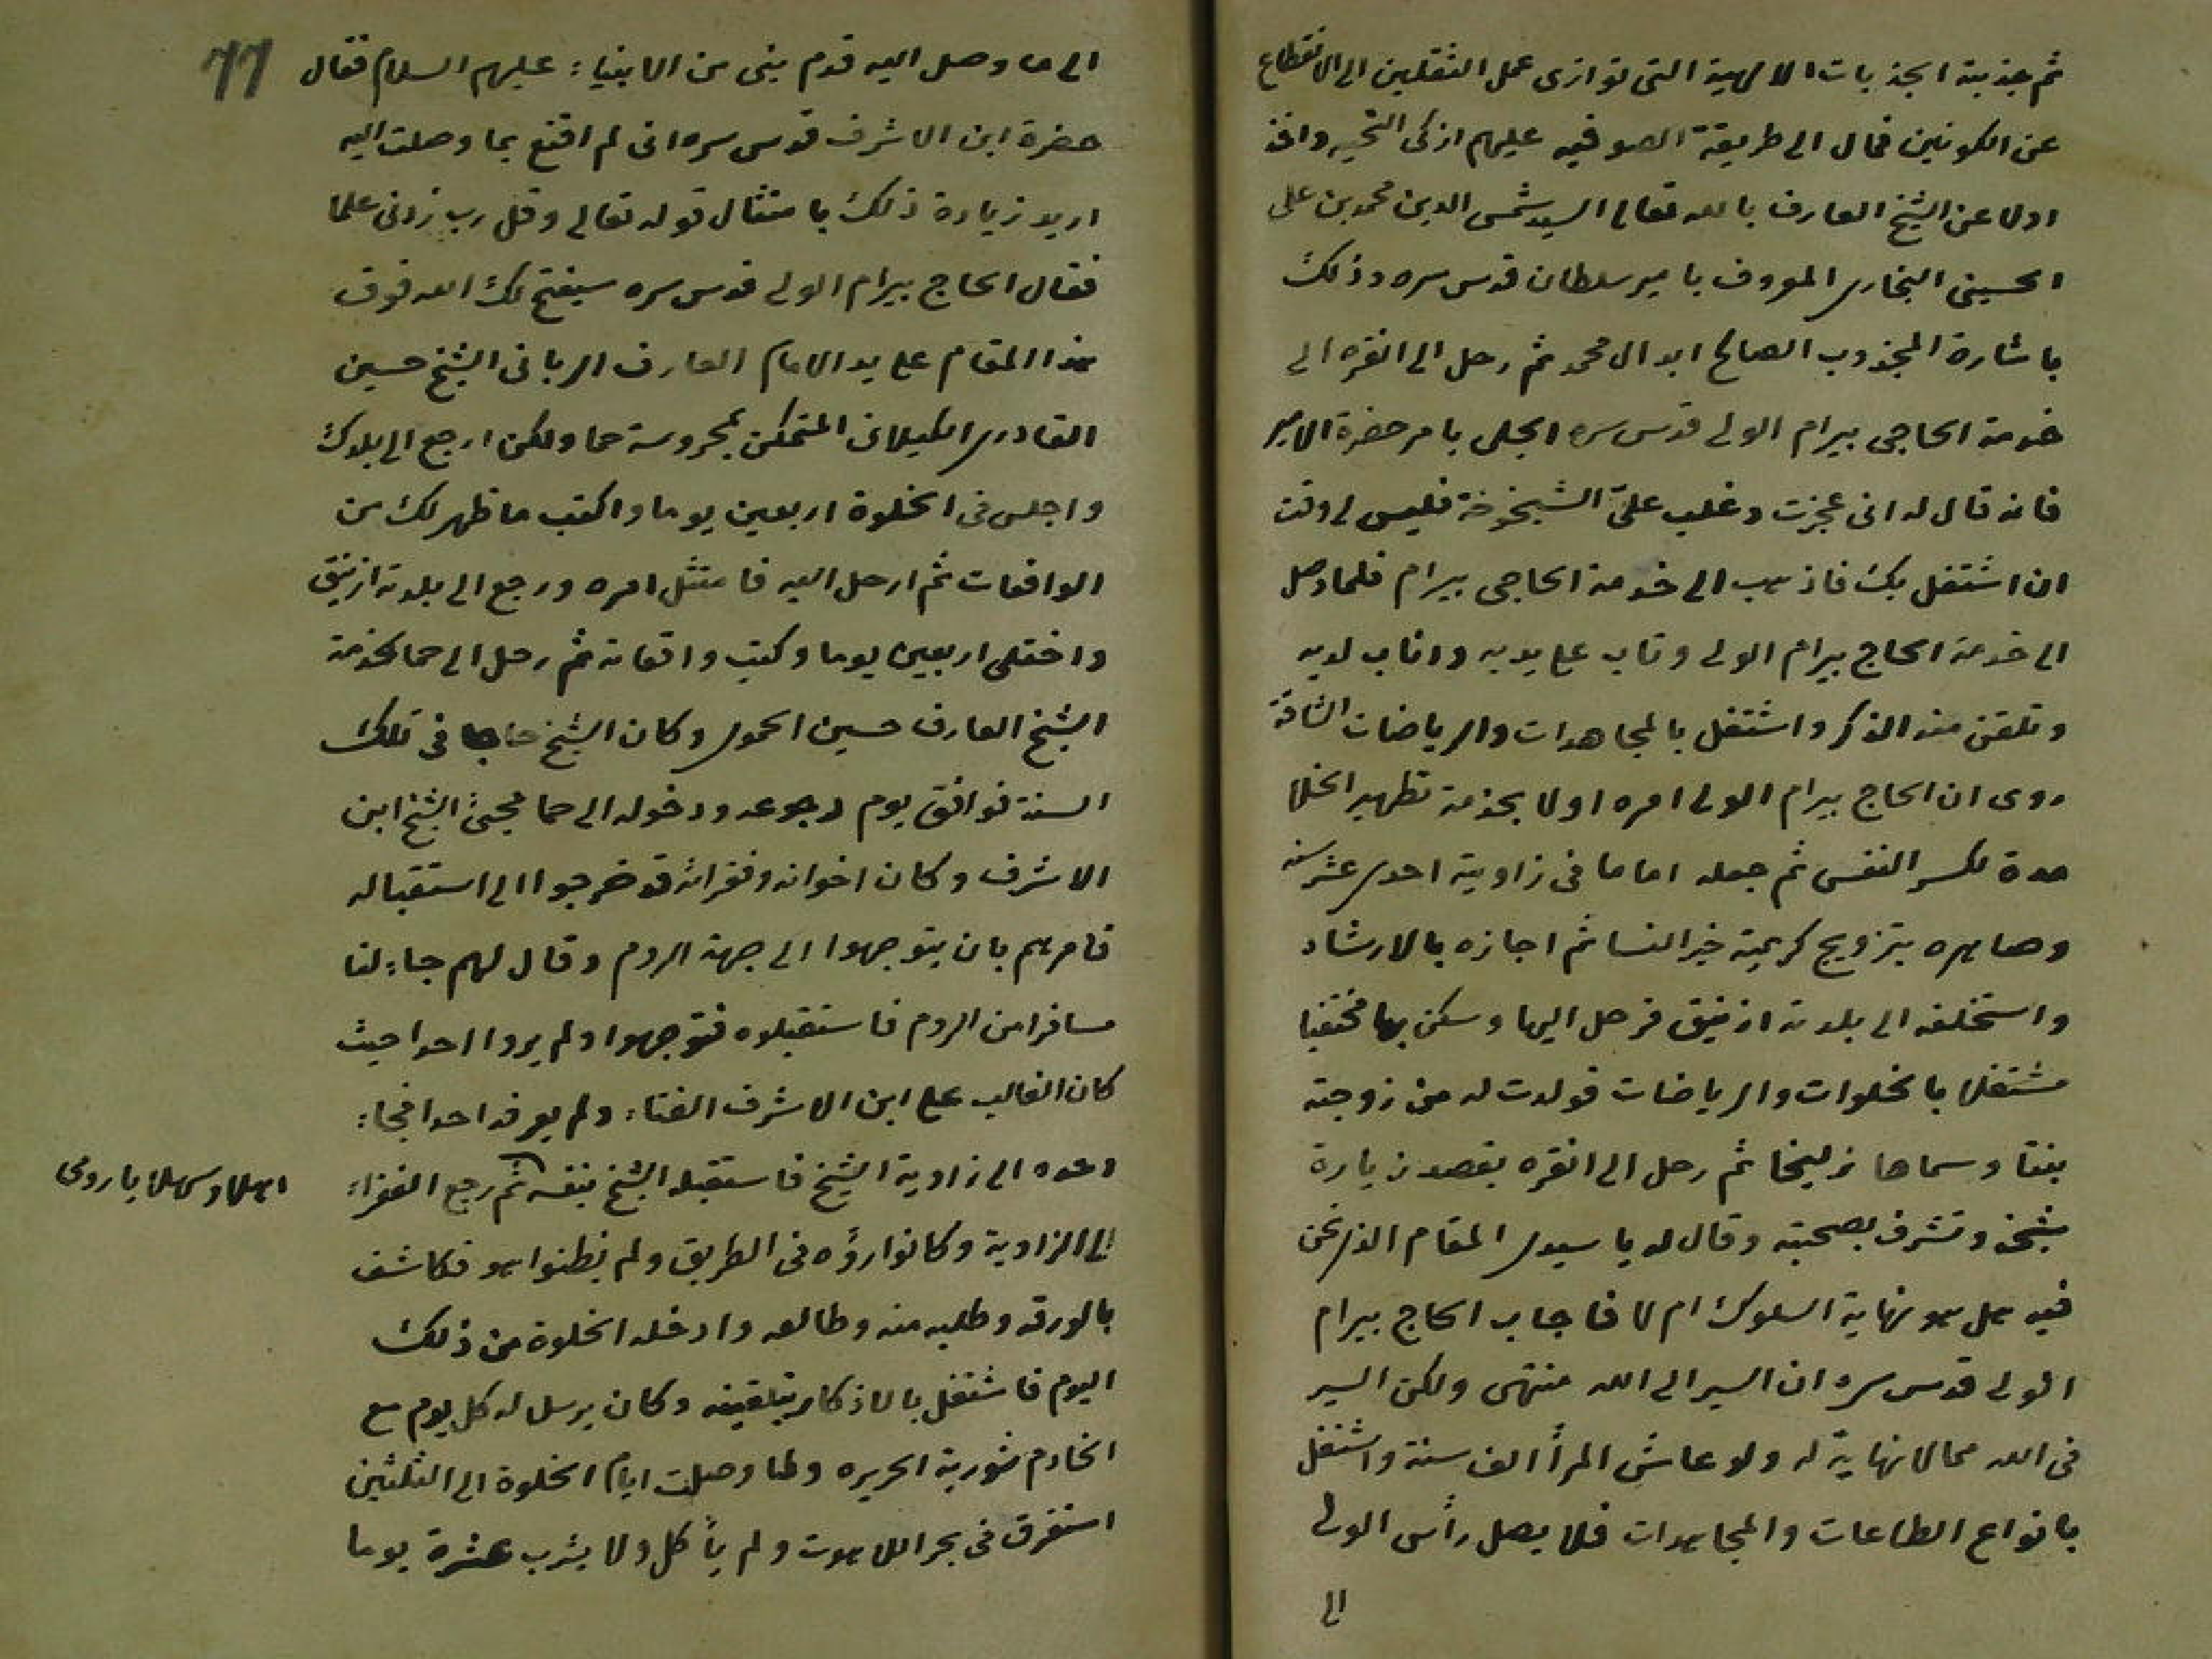 ثم جذبته الجذبات الالهية التى توازى عمل الثقلين الى الانقطاع
عن الكونين فمال الى طريقة الصوفيه عليهم ازكى التحيه واخذ
اولا عن الشيخ العارف بالله تعالى السيد شمس الدين محمد بن على
الحسينى البخارى المعروف بامير سلطان قدس سره وذلك
باشارة المجذوب الصالح ابدال محمد ثم رحل الى انقره الى
خدمة الحاجى بيرام الولى قدس سره الجلى بامر حضرة الامير
فانه قال له انى عجزت وغلب علىّ الشيخوخة فليس لى وقت
ان اشتغل بك فاذهب الى خدمة الحاجى بيرام فلما وصل
الى خدمة الحاج بيرام الولى وتاب على يديه واناب لديه
وتلقن منه الذكر واشتغل بالمجاهدات والرياضات الشاقة
روى ان الحاج بيرام الولى امره اولا بخدمة تطهير الخلا
مدة لكسر النفس ثم جعله اماما فى زاوية احدى عشر سنه
وصاهره بتزويج كريمته خير النسا ثم اجازه بالارشاد
واستخلفه الى بلدته ازنيق فرحل اليها وسكن بها مختفيا
مشتغلا بالخلوات والرياضات فولدت له من زوجته
بنتا وسماها زليخا ثم رحل الى انقره بقصد زيارة
شيخه وتشرف بصحبته وقال له يا سيدى المقام الذى نحن
فيه هل هو نهاية السلوك ام لا فاجاب الحاج بيرام
الولى قدس سره ان السير الى الله منتهى ولكن السير
فى الله محالا نهاية له ولو عاش المرأ الف سنة واشتغل
بانواع الطاعات والمجاهدات فلا يصل رأس الولى
الى
77
الى ما وصل اليه قدم نبى من الانبياء عليهم السلام فقال
حضرة ابن الاشرف قدس سره انى لم اقنع بما وصلت اليه
اريد زيادة ذلك بامتثال قوله تعالى وقل رب زدنى علما
فقال الحاج بيرام الولى قدس سره سيفتح لك الله فوق
هذا المقام على يد الامام العارف الربانى الشيخ حسين
القادرى الكيلانى المتمكن بمحروسة حما ولكن ارجع الى بلدك
واجلس فى الخلوة اربعين يوما واكتب ما ظهر لك من
الواقعات ثم ارحل اليه فامتثل امره ورجع الى بلدته ازنيق
واختلى اربعين يوما وكتب واقعاته ثم رحل الى حما لخدمة
الشيخ العارف حسين الحموى وكان الشيخ حاجا فى تلك
السنة فوافق يوم رجوعه ودخوله الى حما مجئ الشيخ ابن
الاشرف وكان اخوانه وفقرائه قد خرجوا الى استقباله
فامرهم بان يتوجهوا الى جهة الروم وقال لهم جاء لنا
مسافر من الروم فاستقبلوه فتوجهوا ولم يروا احدا حيث
كان الغالب على ابن الاشرف الفناء ولم يعرفه احدا فجاء
وعده الى زاوية الشيخ فاستقبله الشيخ بنفسه ثم رجع الفقراء
اهلا وسهلا يا رومى
الى الزاوية وكانوا رؤه فى الطريق ولم يظنوا هو فكاشف
بالورقه وطلبه منه وطالعه وادخله الخلوة من ذلك
اليوم فاشتغل بالاذكار بتلقينه وكان يرسل له كل يوم مع
الخادم شوربة الحريره ولما وصلت ايام الخلوة الى الثلثين
استغرق فى بحر اللاهوت ولم يأكل ولا يشرب عشرة يوما